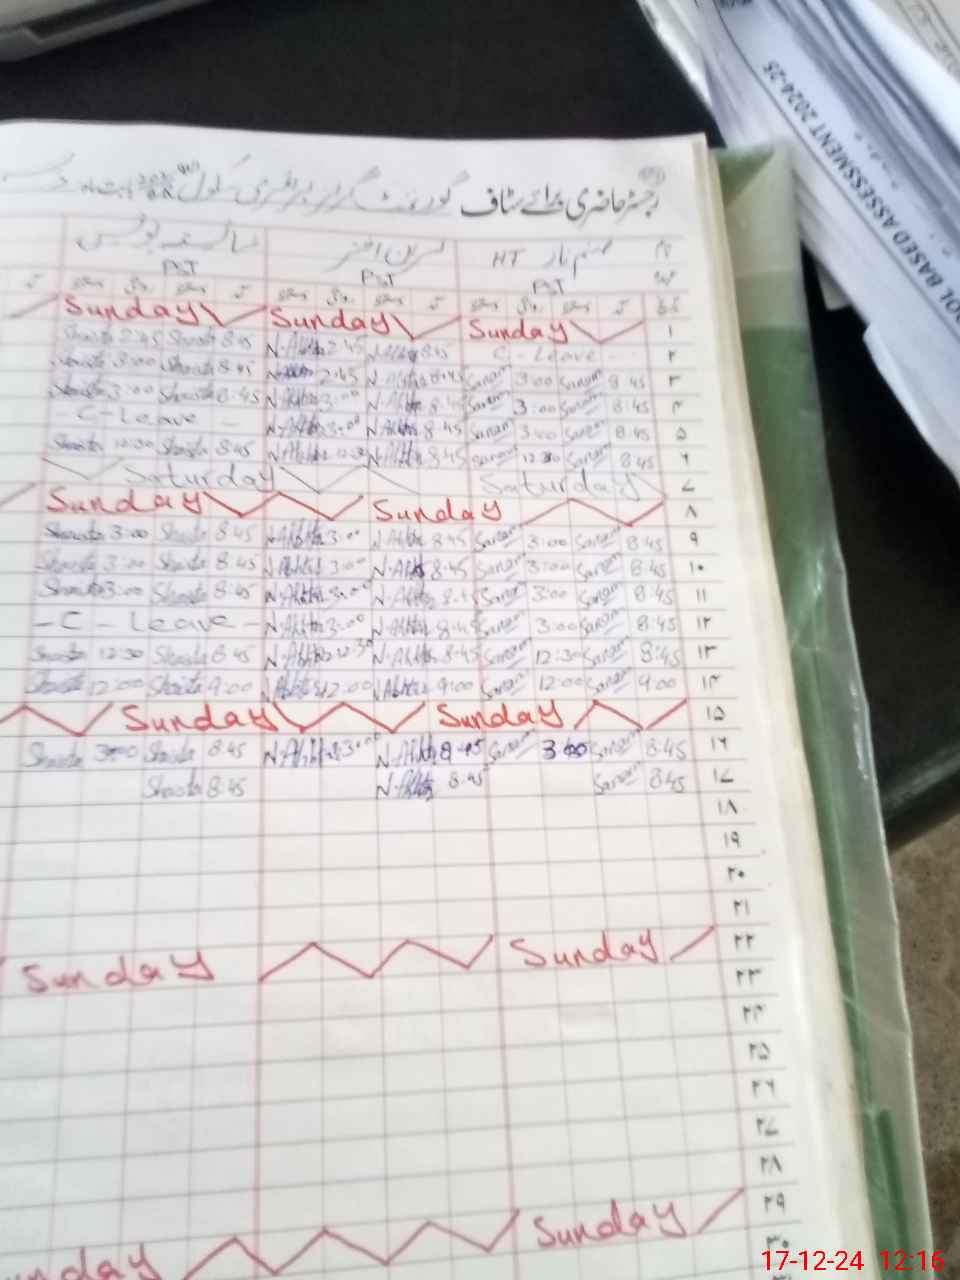 OL BASED ASSESSMENT 2024-25
رجسٹر حاضری برائے سٹاف گورنمنٹ گرلز پرائمری سکول
نام صنم ناز HT نسرین اختر شائستہ یونس
PST PST PST
۱ Sunday Sunday Sunday
۲ C - Leave N.Akhtar 8:45 N.Akhtar 2:45 Shaista 8:45 Shaista 2:45
۳ 8:45 Sanam 3:00 Sanam N.Akhtar 8:45 2:45 Shaista 8:45 Shaista 3:00
۴ 8:45 Sanam 3:00 Sanam N.Akhtar 8:45 N.Akhtar 3:00 Shaista 8:45 Shaista 3:00
۵ 8:45 Sanam 3:00 Sanam N.Akhtar 8:45 N.Akhtar 3:00 - C - Leave -
۶ 8:45 Sanam 12:30 Sanam N.Akhtar 8:45 N.Akhtar 12:30 Shaista 8:45 Shaista 12:30
۷ Saturday Saturday
۸ Sunday Sunday
۹ 8:45 Sanam 3:00 Sanam N.Akhtar 8:45 N.Akhtar 3:00 Shaista 8:45 Shaista 3:00
۱۰ 8:45 Sanam 3:00 Sanam N.Akhtar 8:45 N.Akhtar 3:00 Shaista 8:45 Shaista 3:00
۱۱ 8:45 Sanam 3:00 Sanam N.Akhtar 8:45 N.Akhtar 3:00 Shaista 8:45 Shaista 3:00
۱۲ 8:45 Sanam 3:00 Sanam N.Akhtar 8:45 N.Akhtar 3:00 - C - Leave -
۱۳ 8:45 Sanam 12:30 Sanam N.Akhtar 8:45 N.Akhtar 12:30 Shaista 8:45 Shaista 12:30
۱۴ 9:00 Sanam 12:00 Sanam N.Akhtar 9:00 N.Akhtar 12:00 Shaista 9:00 Shaista 12:00
۱۵ Sunday Sunday
۱۶ 8:45 Sanam 3:00 Sanam N.Akhtar 8:45 N.Akhtar 3:00 Shaista 8:45 Shaista 3:00
۱۷ 8:45 Sanam N.Akhtar 8:45 Shaista 8:45
۱۸
۱۹
۲۰
۲۱
۲۲ Sunday Sunday
۲۳
۲۴
۲۵
۲۶
۲۷
۲۸
۲۹ Sunday
۳۰
17-12-24 12:16